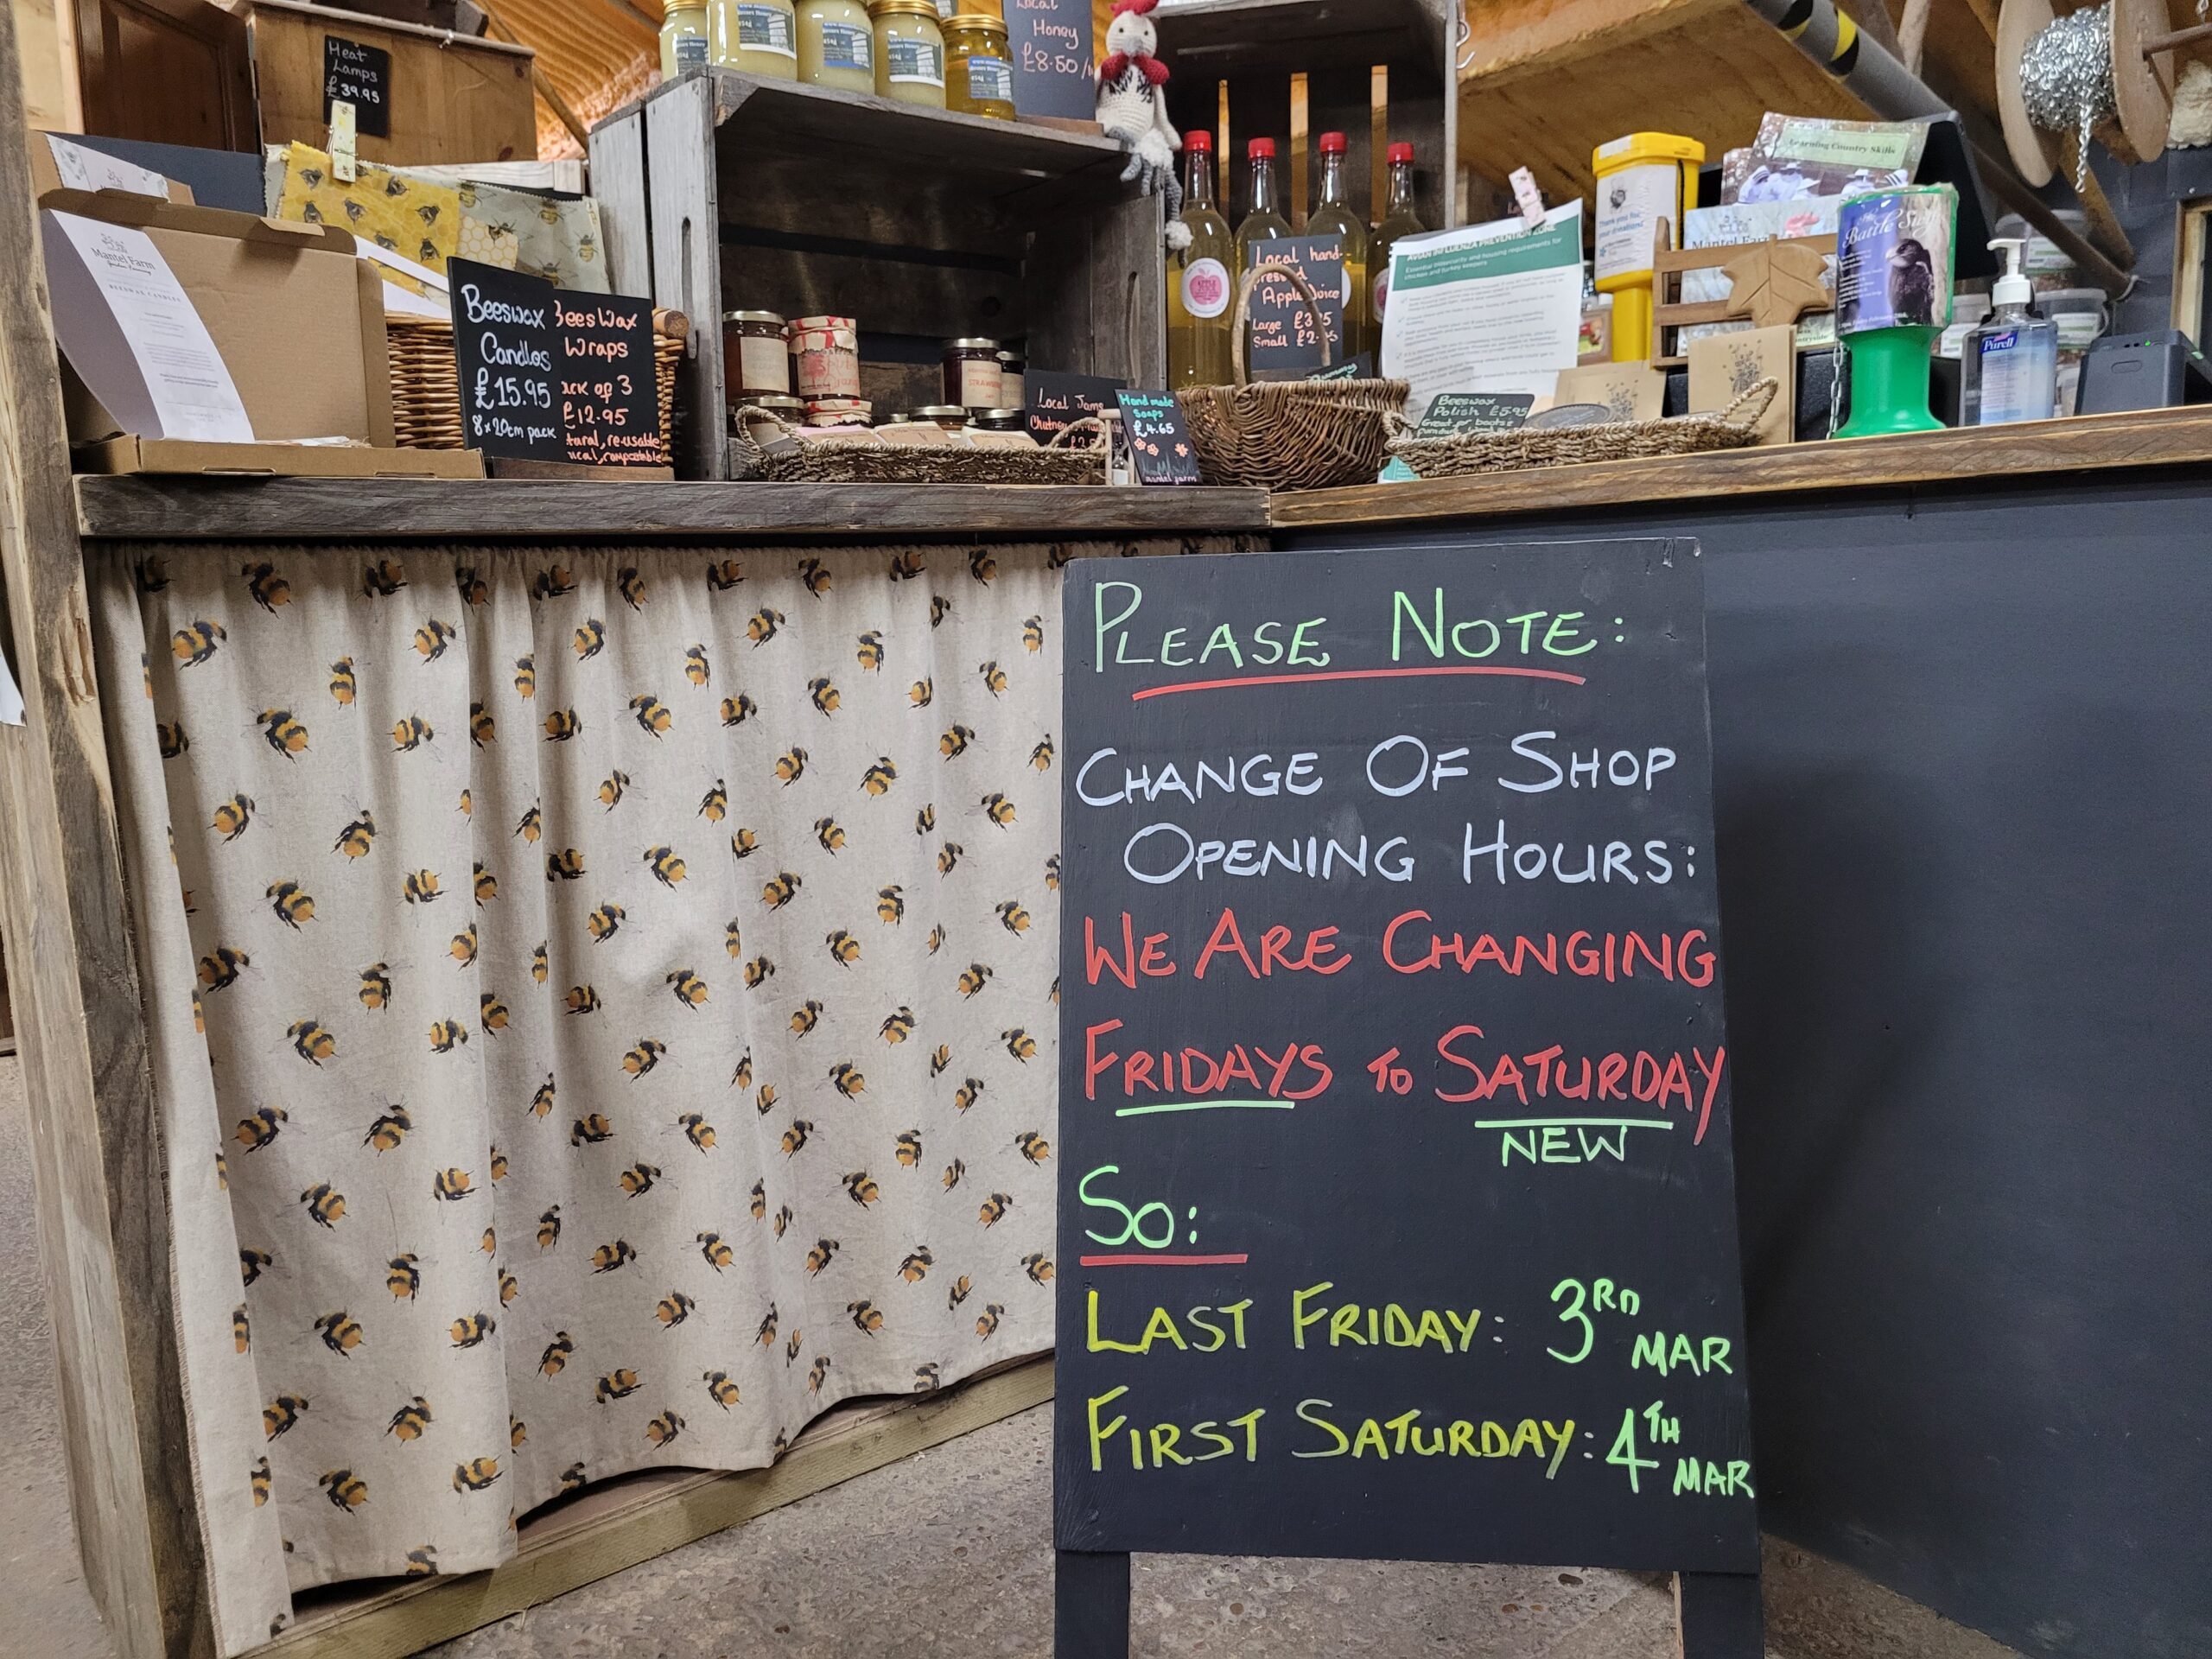 Heat
Lamps
£39.95
Local
Honey
£8.50
Mantel Farm
BEESWAX CANDLES
Beeswax
Candles
£15.95
8x20cm pack
Bees Wax
Wraps
of 3
£12.95
re-usable
compostable
Local Jams
Hand made
Soaps
£4.65
Mantel farm
Local hand-
pressed
Apple Juice
Large
Small
AVIAN INFLUENZA PREVENTION ZONE
Essential biosecurity and housing requirements for
chicken and turkey keepers
Beeswax
Polish £5.95
Learning Country Skills
Mantel Farm
Battle
Purell
PLEASE NOTE:
CHANGE OF SHOP
OPENING HOURS:
WE ARE CHANGING
FRIDAYS TO SATURDAY
NEW
SO:
LAST FRIDAY: 3RD MAR
FIRST SATURDAY: 4TH MAR